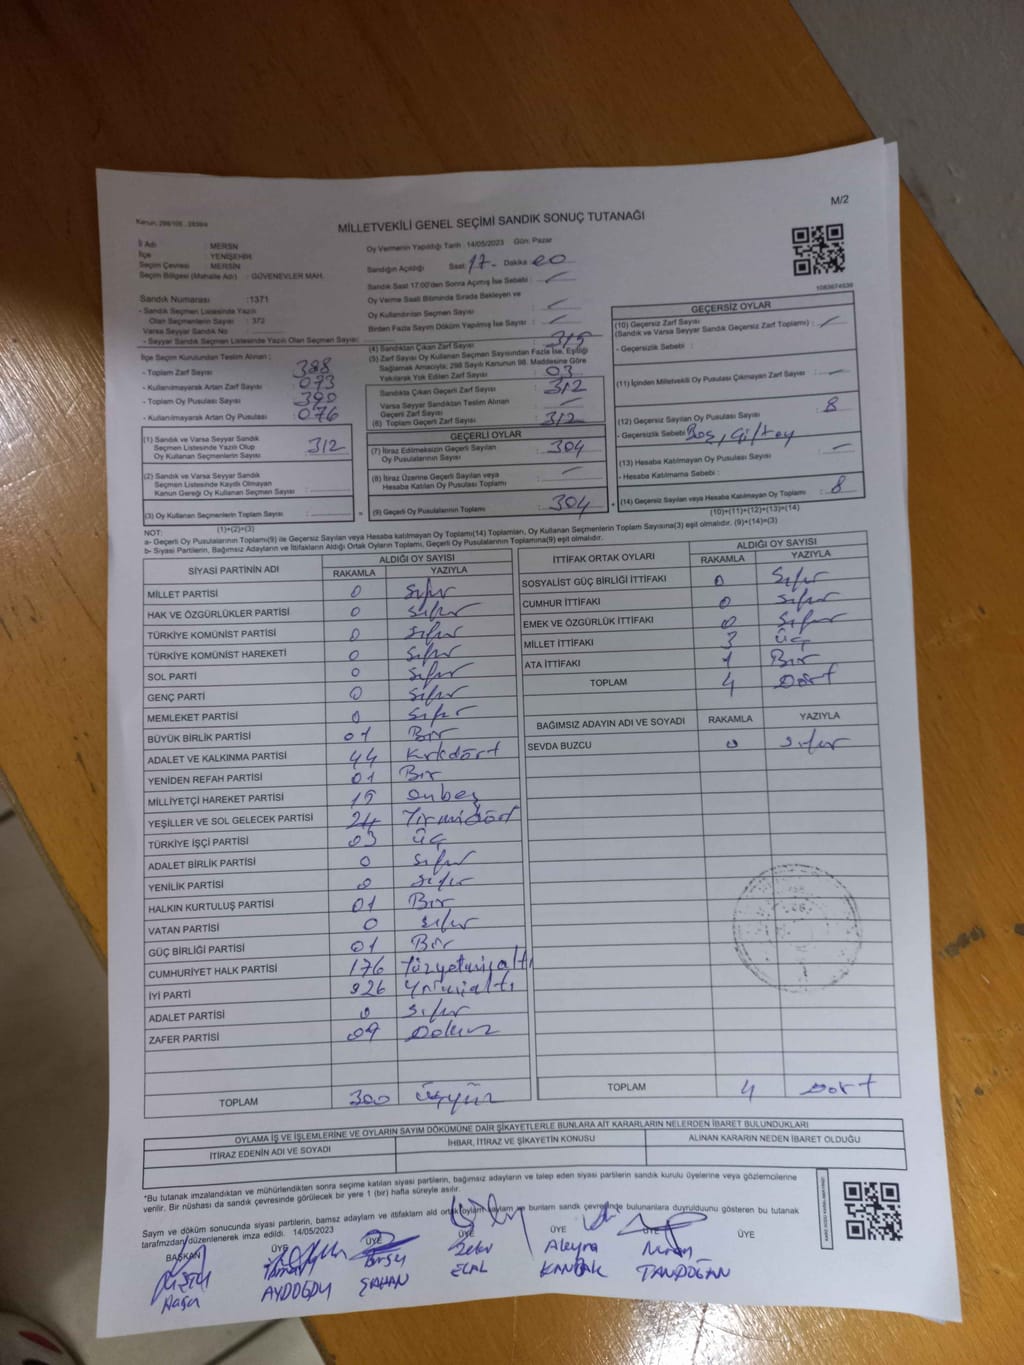 M/2
Kanun: 298/105 , 2839/4
MİLLETVEKİLİ GENEL SEÇİMİ SANDIK SONUÇ TUTANAĞI
İl Adı : MERSİN
İlçe : YENİŞEHİR
Seçim Çevresi : MERSİN
Seçim Bölgesi (Mahalle Adı) : GÜVENEVLER MAH.
Oy Vermenin Yapıldığı Tarih : 14/05/2023 Gün: Pazar
Sandığın Açıldığı Saat: 17- Dakika 00
Sandık Saat 17:00'den Sonra Açılmış İse Sebebi :
Oy Verme Saati Bitiminde Sırada Bekleyen ve
Oy Kullandırılan Seçmen Sayısı :
Birden Fazla Sayım Döküm Yapılmış İse Sayısı :
Sandık Numarası :1371
- Sandık Seçmen Listesinde Yazılı
Olan Seçmenlerin Sayısı : 372
Varsa Seyyar Sandık No :
- Seyyar Sandık Seçmen Listesinde Yazılı Olan Seçmen Sayısı:
İlçe Seçim Kurulundan Teslim Alınan ;
- Toplam Zarf Sayısı : 388
- Kullanılmayarak Artan Zarf Sayısı : 073
- Toplam Oy Pusulası : 390
- Kullanılmayarak Artan Oy Pusulası : 076
(4) Sandıktan Çıkan Zarf Sayısı : 315
(5) Zarf Sayısı Oy Kullanan Seçmen Sayısından Fazla İse, Eşitliği
Sağlamak Amacıyla; 298 Sayılı Kanunun 98. Maddesine Göre
Yakılarak Yok Edilen Zarf Sayısı : 03
Sandıkta Çıkan Geçerli Zarf Sayısı : 312
Varsa Seyyar Sandıktan Teslim Alınan
Geçerli Zarf Sayısı :
(6) Toplam Geçerli Zarf Sayısı : 312
(1) Sandık ve Varsa Seyyar Sandık
Seçmen Listesinde Yazılı Olup
Oy Kullanan Seçmenlerin Sayısı : 312
(2) Sandık ve Varsa Seyyar Sandık
Seçmen Listesinde Kayıtlı Olmayan
Kanun Gereği Oy Kullanan Seçmen Sayısı :
(3) Oy Kullanan Seçmenlerin Toplam Sayısı :
(1)+(2)=(3)
GEÇERLİ OYLAR
(7) İtiraz Edilmeksizin Geçerli Sayılan
Oy Pusulalarının Sayısı : 304
(8) İtiraz Üzerine Geçerli Sayılan veya
Hesaba Katılan Oy Pusulası Toplamı :
(9) Geçerli Oy Pusulalarının Toplamı : 304
1083674536
GEÇERSİZ OYLAR
(10) Geçersiz Zarf Sayısı
(Sandık ve Varsa Seyyar Sandık Geçersiz Zarf Toplamı) :
- Geçersizlik Sebebi :
(11) İçinden Milletvekili Oy Pusulası Çıkmayan Zarf Sayısı :
(12) Geçersiz Sayılan Oy Pusulası Sayısı : 8
- Geçersizlik Sebebi : Boş, Çift oy
(13) Hesaba Katılmayan Oy Pusulası Sayısı :
- Hesaba Katılmama Sebebi :
(14) Geçersiz Sayılan veya Hesaba Katılmayan Oy Toplamı : 8
(10)+(11)+(12)+(13)=(14)
NOT:
a- Geçerli Oy Pusulalarının Toplamı(9) ile Geçersiz Sayılan veya Hesaba katılmayan Oy Toplamı(14) Toplamları, Oy Kullanan Seçmenlerin Toplam Sayısına(3) eşit olmalıdır. (9)+(14)=(3)
b- Siyasi Partilerin, Bağımsız Adayların ve İttifakların Aldığı Ortak Oyların Toplamı, Geçerli Oy Pusulalarının Toplamına(9) eşit olmalıdır.
SİYASİ PARTİNİN ADI ALDIĞI OY SAYISI
RAKAMLA YAZIYLA
MİLLET PARTİSİ 0 Sıfır
HAK VE ÖZGÜRLÜKLER PARTİSİ 0 Sıfır
TÜRKİYE KOMÜNİST PARTİSİ 0 Sıfır
TÜRKİYE KOMÜNİST HAREKETİ 0 Sıfır
SOL PARTİ 0 Sıfır
GENÇ PARTİ 0 Sıfır
MEMLEKET PARTİSİ 0 Sıfır
BÜYÜK BİRLİK PARTİSİ 01 Bir
ADALET VE KALKINMA PARTİSİ 44 Kırkdört
YENİDEN REFAH PARTİSİ 01 Bir
MİLLİYETÇİ HAREKET PARTİSİ 15 onbeş
YEŞİLLER VE SOL GELECEK PARTİSİ 24 Yirmidört
TÜRKİYE İŞÇİ PARTİSİ 03 üç
ADALET BİRLİK PARTİSİ 0 Sıfır
YENİLİK PARTİSİ 0 Sıfır
HALKIN KURTULUŞ PARTİSİ 01 Bir
VATAN PARTİSİ 0 Sıfır
GÜÇ BİRLİĞİ PARTİSİ 01 Bir
CUMHURİYET HALK PARTİSİ 176 Yüzyetmişaltı
İYİ PARTİ 026 Yirmialtı
ADALET PARTİSİ 0 Sıfır
ZAFER PARTİSİ 09 Dokuz
TOPLAM 300 Üçyüz
İTTİFAK ORTAK OYLARI ALDIĞI OY SAYISI
RAKAMLA YAZIYLA
SOSYALİST GÜÇ BİRLİĞİ İTTİFAKI 0 Sıfır
CUMHUR İTTİFAKI 0 Sıfır
EMEK VE ÖZGÜRLÜK İTTİFAKI 0 Sıfır
MİLLET İTTİFAKI 3 üç
ATA İTTİFAKI 1 Bir
TOPLAM 4 Dört
BAĞIMSIZ ADAYIN ADI VE SOYADI RAKAMLA YAZIYLA
SEVDA BUZCU 0 Sıfır
TOPLAM 4 Dört
OYLAMA İŞ VE İŞLEMLERİNE VE OYLARIN SAYIM DÖKÜMÜNE DAİR ŞİKAYETLERLE BUNLARA AİT KARARLARIN NELERDEN İBARET BULUNDUKLARI
İTİRAZ EDENİN ADI VE SOYADI
İHBAR, İTİRAZ VE ŞİKAYETİN KONUSU
ALINAN KARARIN NEDEN İBARET OLDUĞU
*Bu tutanak imzalandıktan ve mühürlendikten sonra seçime katılan siyasi partilerin, bağımsız adayların ve talep eden siyasi partilerin sandık kurulu üyelerine veya gözlemcilerine
verilir. Bir nüshası da sandık çevresinde görülecek bir yere 1 (bir) hafta süreyle asılır.
Sayım ve döküm sonucunda siyasi partilerin, bamsz adayların ve ittifakların ald ortak oyların saylam ve bunların sandık çevresinde bulunanlara duyrulduunu gösteren bu tutanak
tarafmzdan düzenlenerek imza edildi. 14/05/2023
BAŞKAN ÜYE ÜYE ÜYE ÜYE ÜYE ÜYE
AYDOĞDU
ŞAHAN
Aleyna
TANDOĞAN